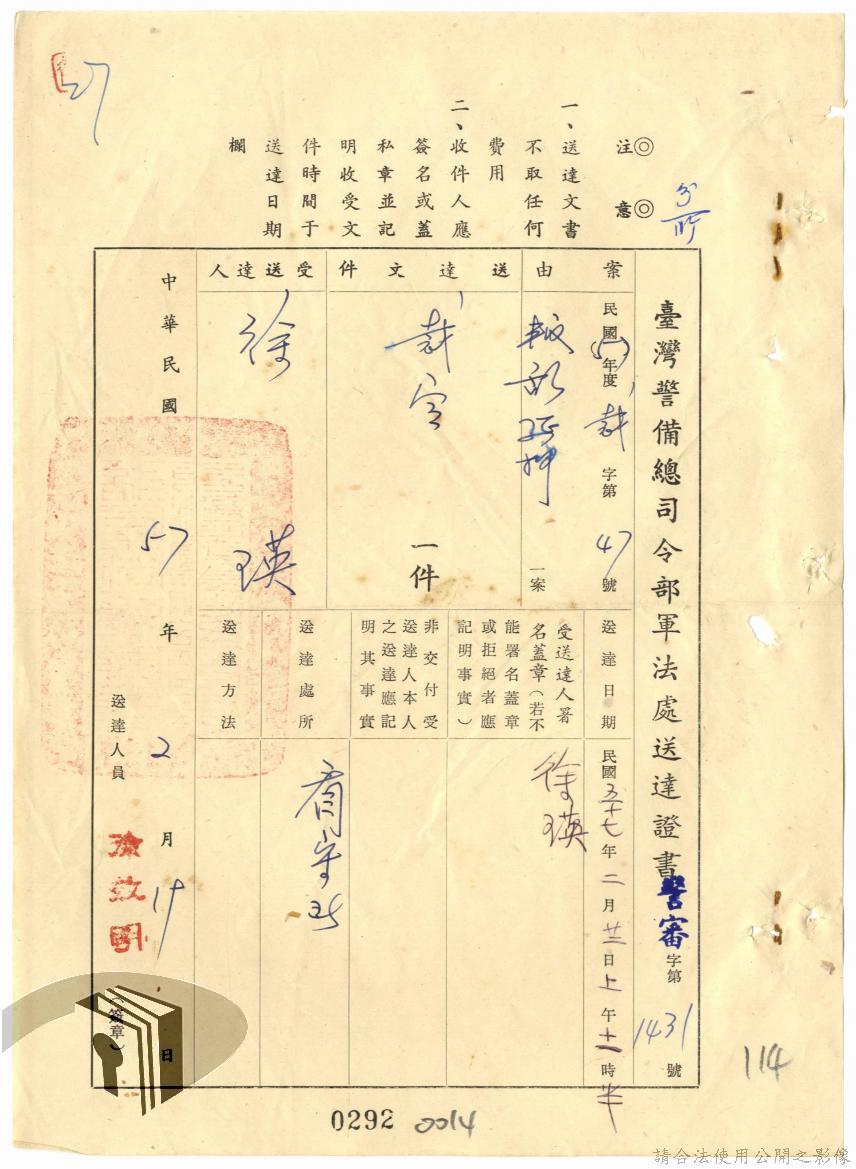 ◎注意◎
一、送達文書
不取任何
費用
二、收件人應
簽名或蓋
私章並記
明收受文
件時間于
送達日期
欄
臺灣警備總司令部軍法處送達證書警審字第1431號
案由
民國57年度裁字第47號
叛亂延押
一案
送達文件
裁定
一件
受送達人
徐瑛
送達日期
民國五十七年二月廿三日上午十一時半
受送達人署
名蓋章(若不
能署名蓋章
或拒絕者應
記明事實)
徐瑛
非交付受
送達人本人
之送達應記
明其事實
送達處所
看守所
送達方法
中華民國57年2月19日
送達人員
(簽章)
0292
0014
114
請合法使用公開之影像